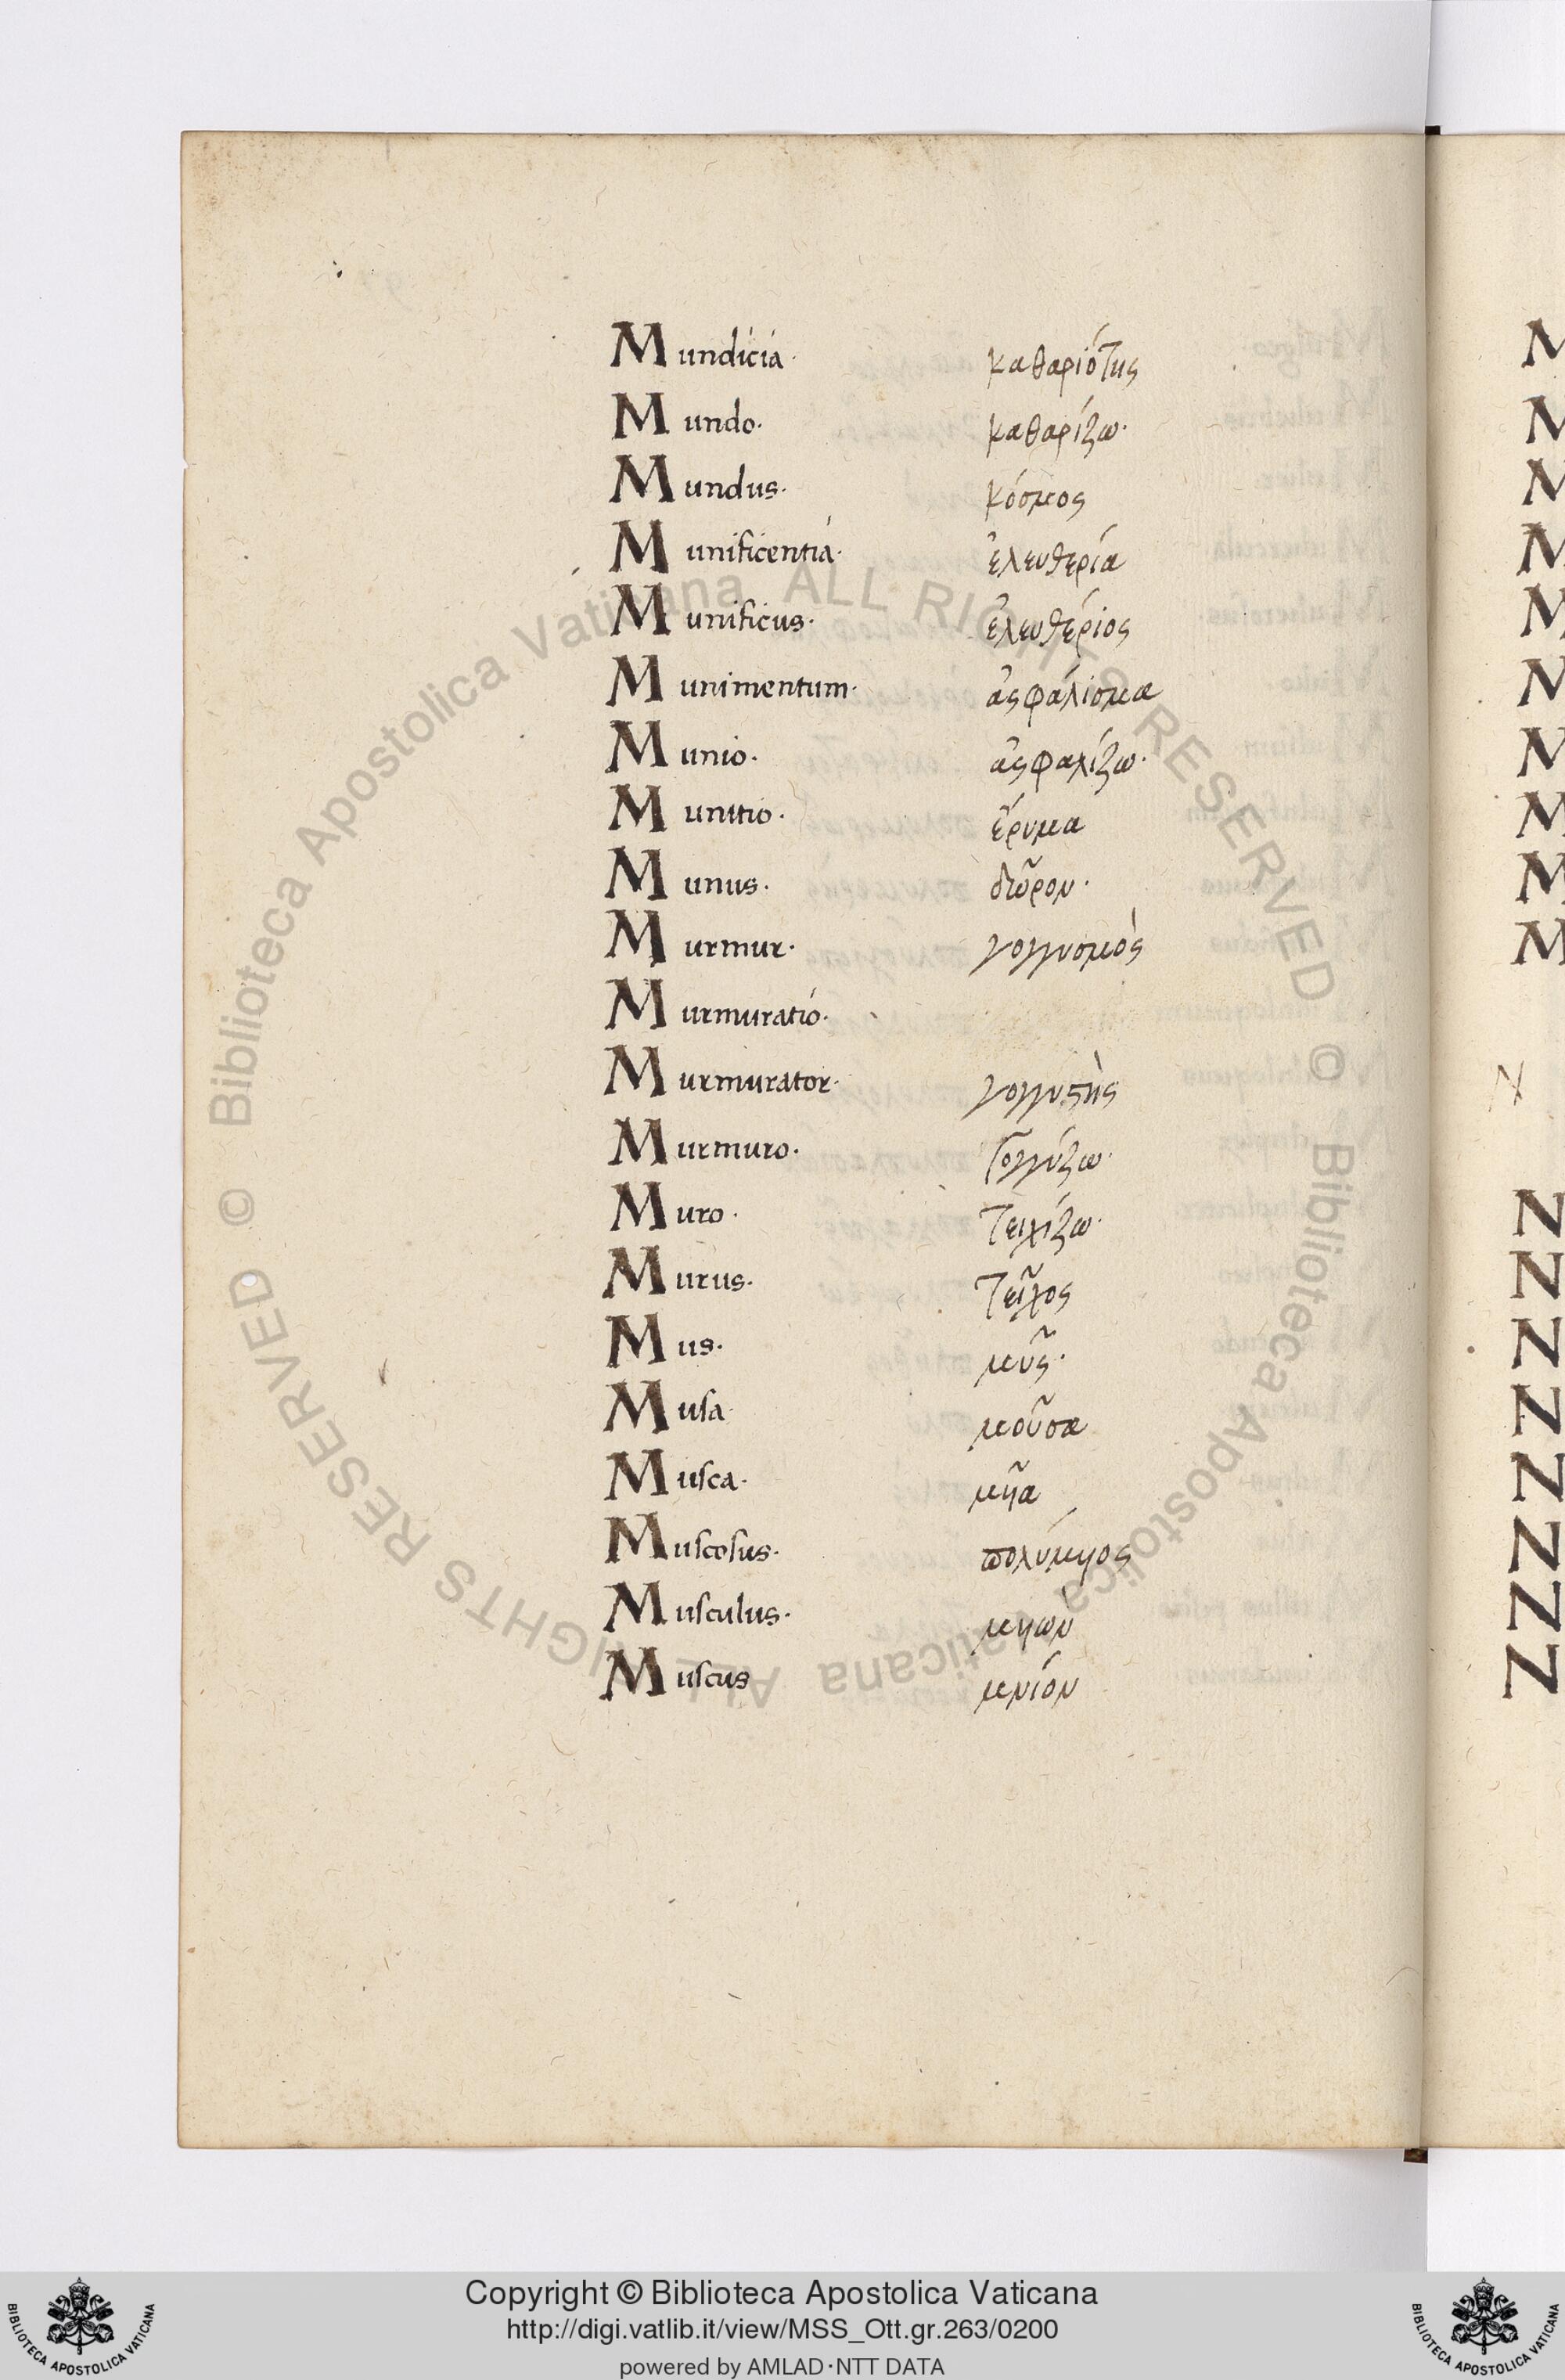 Mundicia· καθαριότης
Mundo· καθαρίζω·
Mundus· κόσμος
Munificentia· ἐλευθερία
Munificus· ἐλευθέριος
Munimentum· ἀσφάλισμα
Munio· ἀσφαλίζω·
Munitio· ἔρυμα
Munus· δῶρον·
Murmur· γογγυσμὸς
Murmuratio·
Murmurator· γογγυστὴς
Murmuro· γογγύζω·
Muro· τειχίζω·
Murus· τεῖχος
Mus· μῦς·
Musa· μοῦσα
Musca· μυῖα
Muscosus· πολύμυος
Musculus· μυὼν
Muscus μνίον
N
Copyright © Biblioteca Apostolica Vaticana
http://digi.vatlib.it/view/MSS_Ott.gr.263/0200
powered by AMLAD·NTT DATA
BIBLIOTECA APOSTOLICA VATICANA
BIBLIOTECA APOSTOLICA VATICANA
© Biblioteca Apostolica Vaticana ALL RIGHTS RESERVED
© Biblioteca Apostolica Vaticana ALL RIGHTS RESERVED